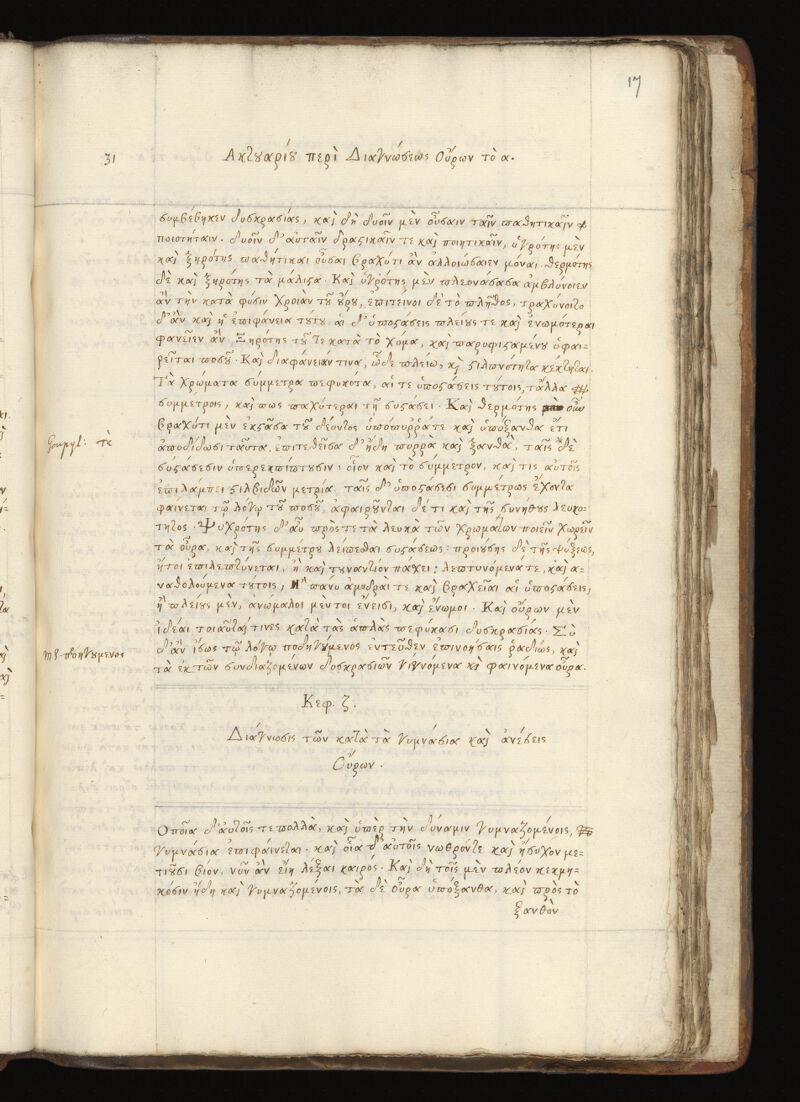 17
31 Ακτουαρίου περὶ Διαγνώσεως Οὔρων τὸ α.
συμβέβηκεν δυσκρασίας, καὶ δὴ δυοῖν μὲν οὔσαιν ταῖν παθητικαῖν
ποιοτήταιν. δυοῖν δ' αὐταῖν δραστικαῖν τε καὶ ποιητικαῖν, ὑγρότης μὲν
καὶ ξηρότης παθητικαι οὖσαι βραχύτι ἂν αλλοιώσαιεν μόναι. θερμότης
δὲ καὶ ξηρότης τὰ μάλιστα. Καὶ ὑγρότης μὲν πλεονάσασα αμβλύνοιεν
ἂν τὴν κατὰ φύσιν χροιὰν τοῦ οὔρου, επιτεινοι δὲ τὸ πλῆθος, τραχύνοιτο
δ' ἂν καὶ ἡ ἐπιφάνεια τούτου. αἱ δ' ὑποστάσεις πλείους τε καὶ ἐνωμότεραι
φανεῖεν ἄν. Ξηρότης τοῦτε κατὰ τὸ χομα, καὶ παρυφισταμένου ὑφαι=
ρεῖται ποσοῦ. Καὶ διαφάνειάν τινα, ὧδε πλείω, καὶ στιλπνότητα κέκτηται.
Τὰ χρώματα σύμμετρα πεφυκοτα, αἵ τε ὑποστάσεις τούτοις, τἆλλα
συμμετροις, καί πως παχύτεραι τῇ συστάσει. Καὶ θερμότης οὖν
βραχύτι μὲν ἐκστᾶσα τοῦ δέοντος ὑπόπυρρά τε καὶ ὑπόξανθα ἔτι
ἀποδίδωσι ταῦτα, ἐπιτεθεῖσα δ' ἤδη πυρρὰ καὶ ξανθὰ, ταῖς δὲ
συστάσεσιν ὑπερεκπίπτουσιν. οἷον καὶ τὸ σύμμετρον, καὶ τις αὐτοῖς
ἐπιλάμπει στιλβηδὼν μετρία. ταῖς δ' ὑποστάσεσι συμμέτρως ἔχοντα
φαινεται τῷ λόγῳ τοῦ ποσοῦ, ἀφαιροῦνται δέ τι καὶ τῆς συνήθους λευκο=
τητος. Ψυχρότης δ' αὖ πρὸς τε τὰ λευκὰ τῶν χρωμάτων ποιεῖν χωρεῖν
τὰ οὖρα, καὶ τῆς συμμετρου λείπεσθαι συστάσεως. προιούσης δὲ τῆς ψύξεως,
ἤτοι επιλεπτύνεται, ἢ καὶ τουναντίον πάχει: λεπτυνόμενά τε, καὶ α=
ναθολούμενα τούτοις, πάνυ ἀμυδραί τε καὶ βραχεῖαι αἱ ὑποστάσεις,
ἢ πλείους μὲν, ἀνώμαλοι μεντοι ἔνεισι, καὶ ἔνωμοι. Καὶ οὔρων μὲν
ἰδέαι τοιαῦταί τινες κατὰ τὰς ἁπλᾶς πεφύκασι δυσκρασίας. Σὺ
δ' ἂν ἴσως τῷ λόγῳ ποδηγούμενος ἐντεῦθεν ἐπινοήσαις ῥαδίως, καὶ
τὰ ἐκ τῶν συνδιαζομένων δυσκρασιῶν γιγνόμενα καὶ φαινόμενα οὖρα.
Goupyl: τὲ
Κεφ. ζ.
Διάγνωσις τῶν κατὰ τὰ γυμνάσια καὶ ἀνέσεις
Οὔρων.
Οποῖα δ' αὐτοῖς τε πολλὰ, καὶ ὑπὲρ τὴν δύναμιν γυμναζομένοις,
γυμνάσια ἐπιφαίνεται. καὶ οἷα δ' αὐτοῖς νωθρόντε καὶ ἥσυχον με=
τιοῦσι βίον, νῦν ἂν εἴη λέξαι καιρός. Καὶ δὴ τοῖς μὲν πλεον κεκμη=
κόσιν ἤδη καὶ γυμναζομένοις, τὰ δὲ οὖρα ὑπόξανθα, καὶ πρὸς τὸ
ξανθὸν